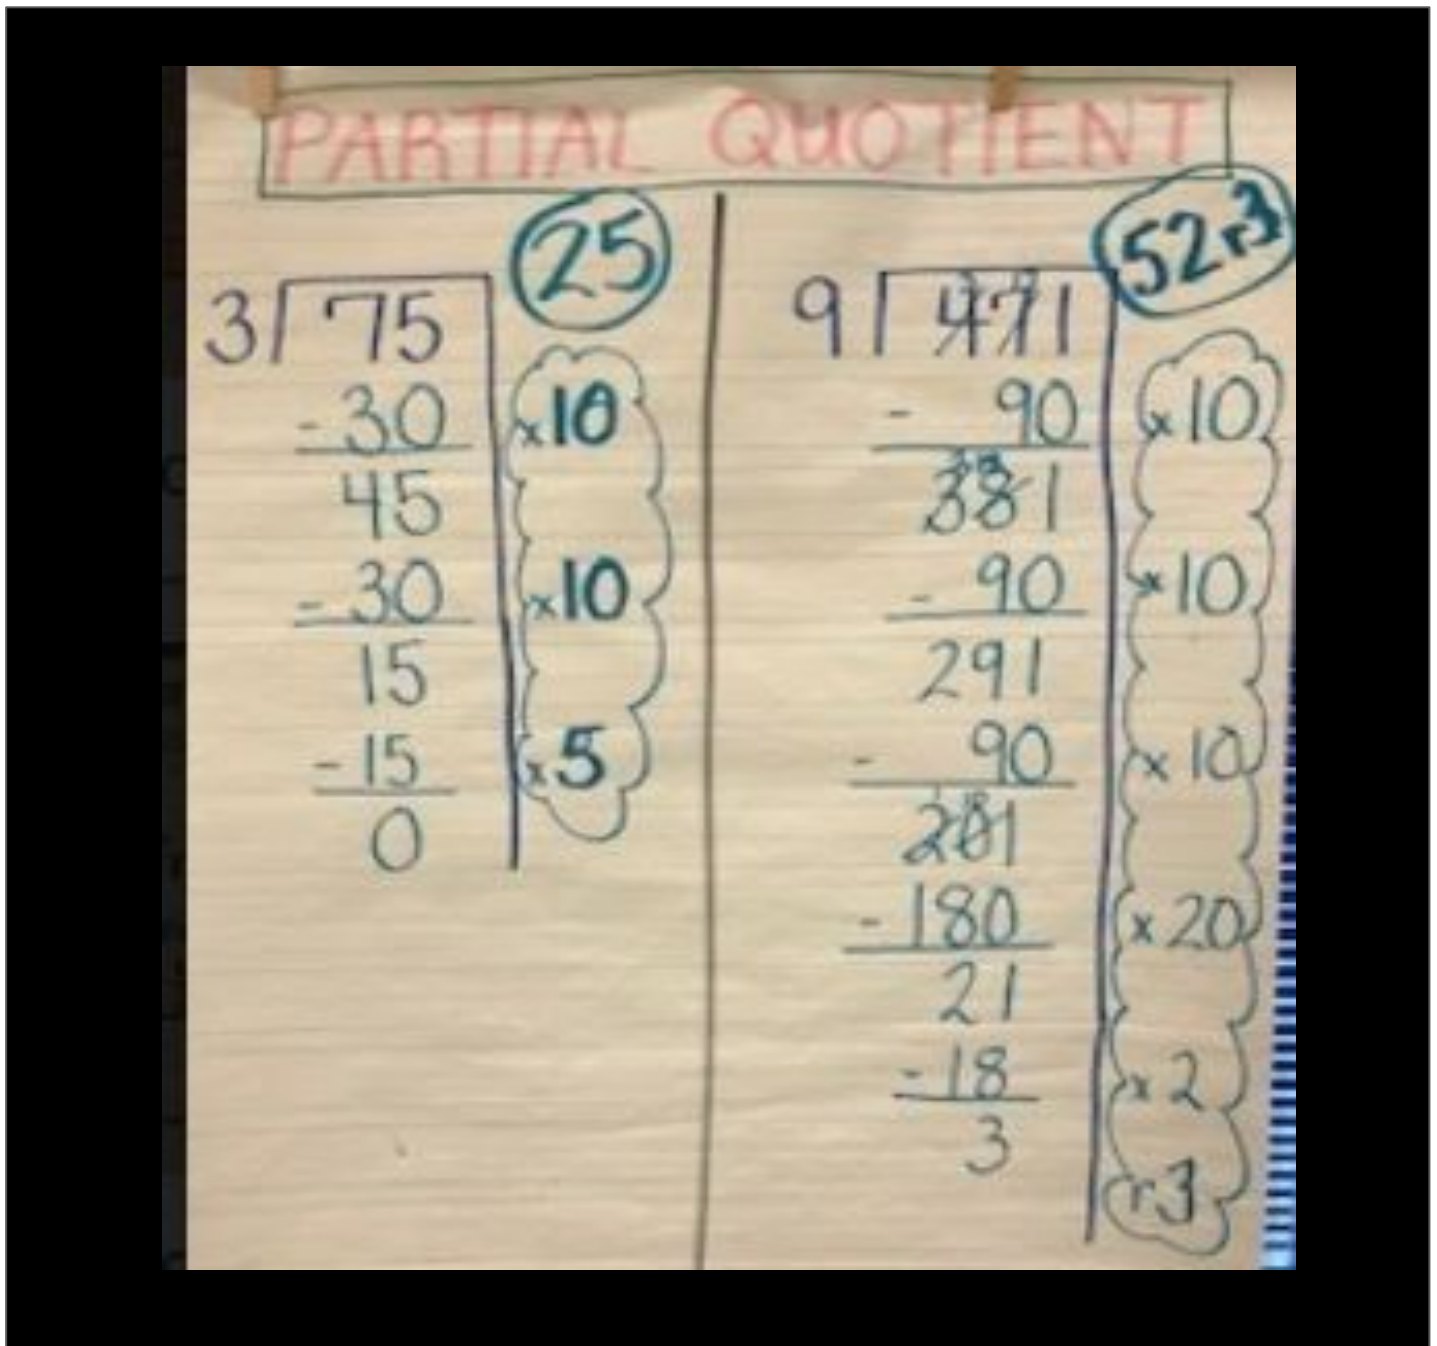 PARTIAL QUOTIENT
25
3 75
- 30 x10
45
- 30 x10
15
- 15 x5
0
52 r3
9 471
- 90 x10
381
- 90 x10
291
- 90 x10
201
- 180 x20
21
- 18 x2
3
r3